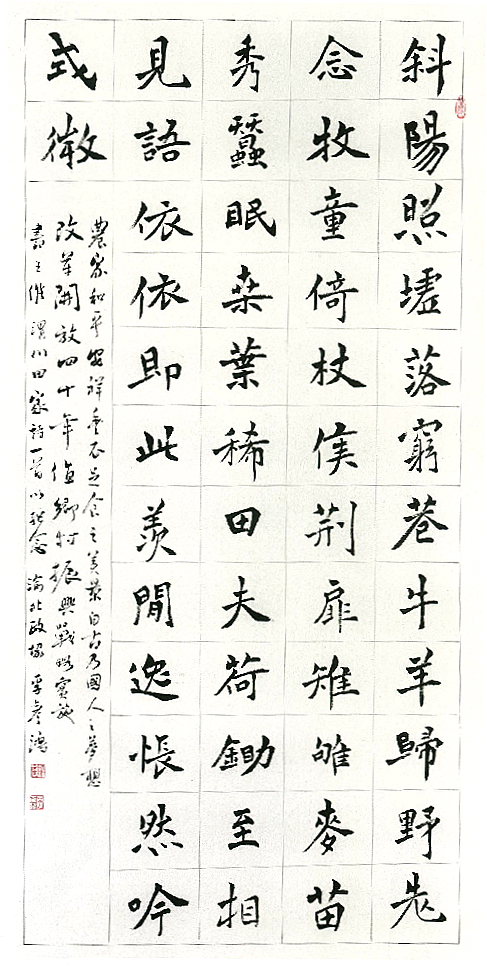 斜陽照墟落窮巷牛羊歸野老
念牧童倚杖候荊扉雉雊麥苗
秀蠶眠桑葉稀田夫荷鋤至相
見語依依即此羨閒逸悵然吟
式微
農家和平安祥豐衣足食之美景自古乃國人之夢想
改革開放四十年值鄉村振興戰略實施
書王維渭川田家詩一首以紀念